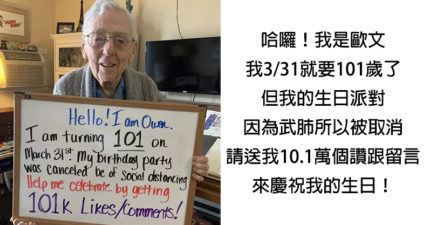 Hello! I am Owen.
I am turning 101 on
March 31st. My birthday party
was canceled bc of Social distancing
Help me celebrate by getting
101K Likes/Comments!
哈囉！我是歐文
我3/31就要101歲了
但我的生日派對
因為武肺所以被取消
請送我10.1萬個讚跟留言
來慶祝我的生日！